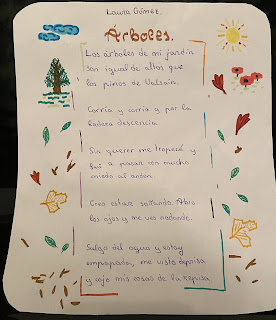 Laura Gómez.
Árboles.
Los árboles de mi jardín
son igual de altos que
los pinos de Valsaín.
Corría y corría y por la
ladera descencía.
Sin querer me tropecé y
fué a pasar con mucho
miedo al andén.
Creo estar soñando. Abro
los ojos y me veo nadando.
Salgo del agua y estoy
empapada, me visto deprisa
y cojo mis cosas de la repisa.